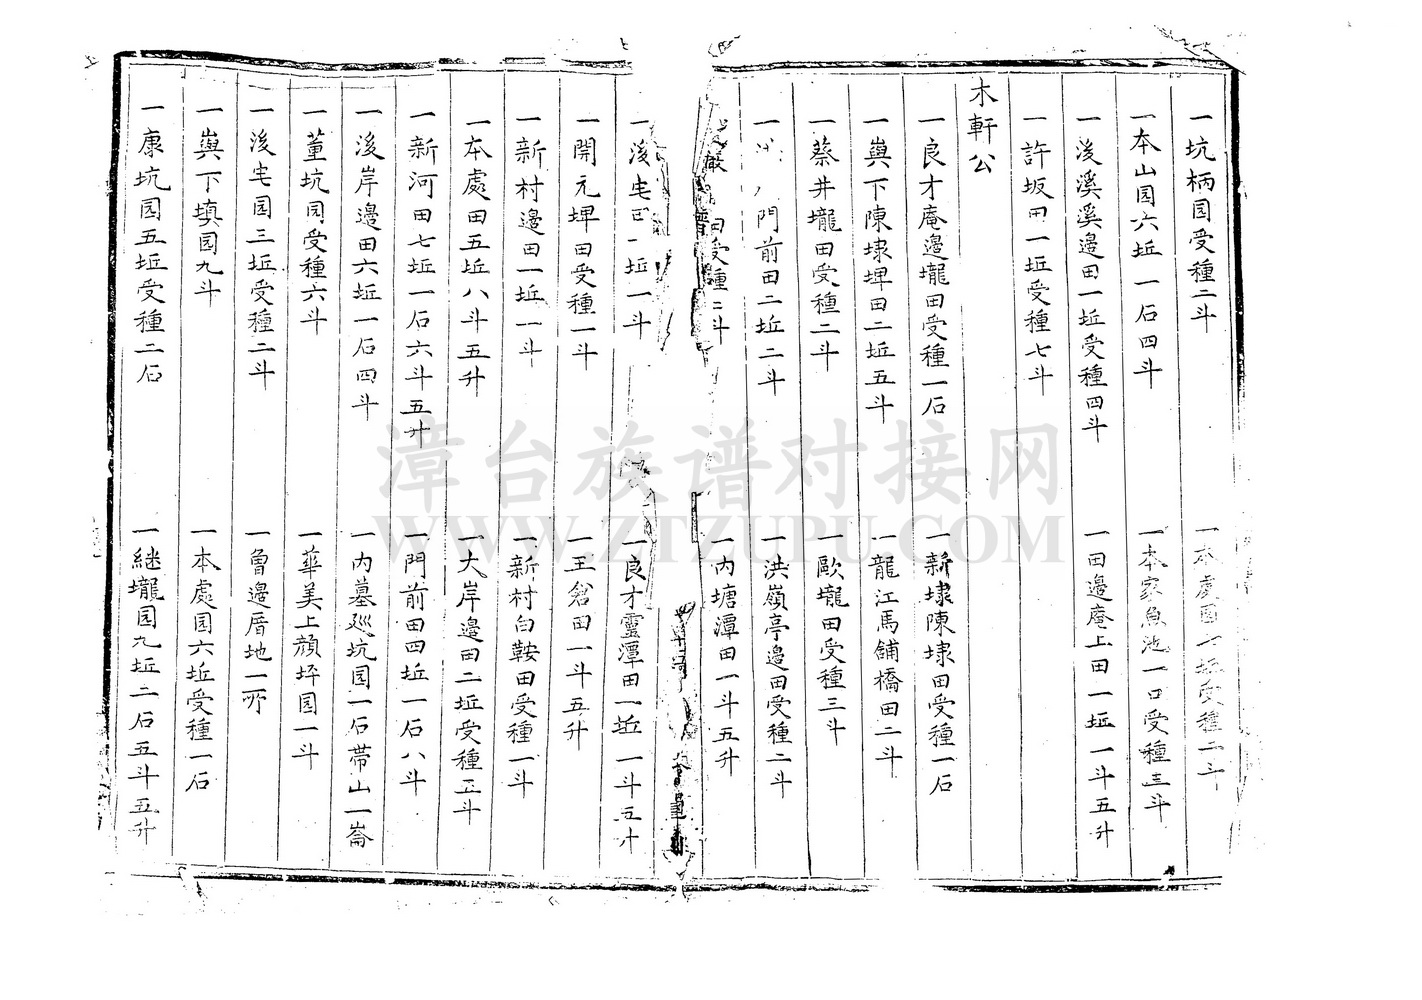 一坑柄园受種二斗 一本處園一坵受種二斗
一本山园六坵一石四斗 一本家魚池一口受種三斗
一後溪溪邉田一坵受種四斗 一田邉庵上田一坵一斗五升
一許坂田一坵受種七斗
木軒公
一良才庵邉壠田受種一石 一新埭陳埭田受種一石
一輿下陳埭埤田二坵五斗 一龍江馬舗橋田二斗
一蔡井壠田受種二斗 一歐壠田受種三斗
門前田二坵二斗 一洪嶺亭邉田受種二斗
田受種二斗 一内塘潭田一斗五升
一後宅田一坵一斗 一良才靈潭田一坵一斗五升
一開元埤田受種一斗 一王倉田一斗五升
一新村邉田一坵一斗 一新村白鞍田受種一斗
一本處田五坵八斗五升 一大岸邉田二坵受種五斗
一新河田七坵一石六斗五升 一門前田四坵一石八斗
一後岸邉田六坵一石四斗 一内墓坑园一石帯山一崙
一董坑园受種六斗 一華美上顔坪园一斗
一後宅园三坵受種二斗 一魯邉厝地一所
一輿下填园九斗 一本處园六坵受種一石
一康坑园五坵受種二石 一継壠园九坵二石五斗五升
漳台族谱对接网
WWW.ZTZUPU.COM